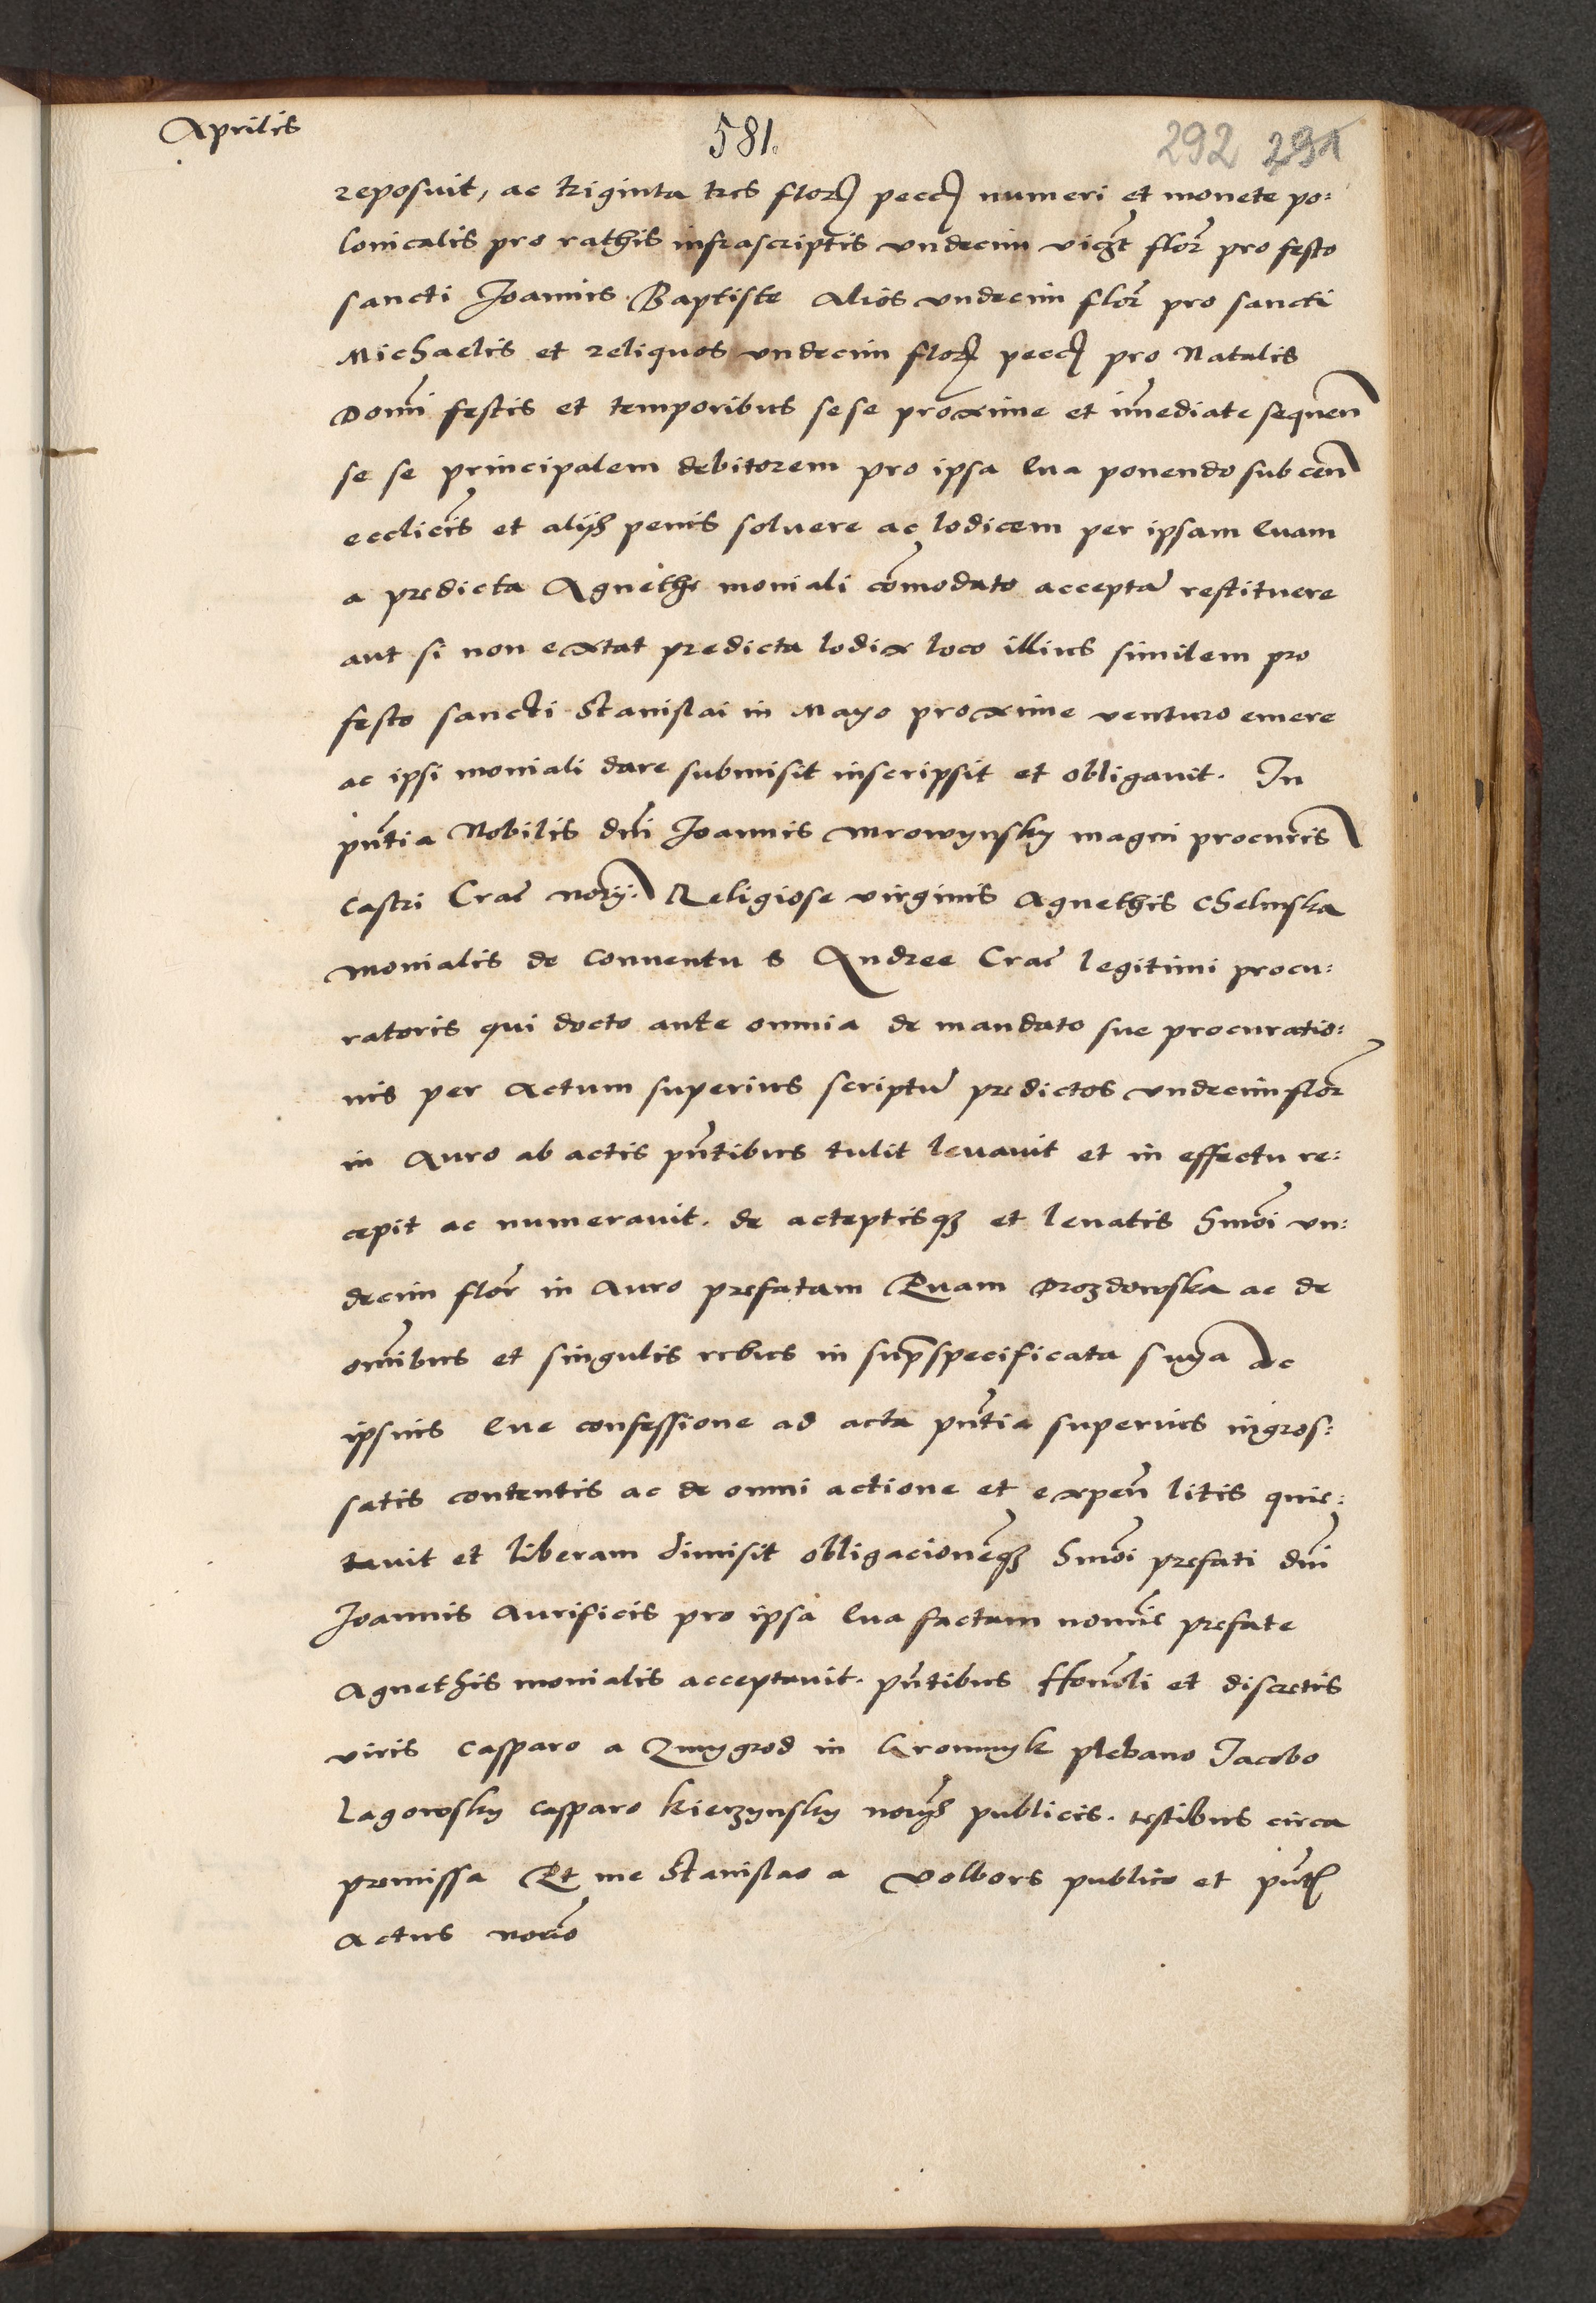 Aprilis
581.
292 291
reposuit, ac triginta tres flor peccu numeri et monete po:
lonicalis pro rathis infrascriptis undecim vidzt flor pro festo
sancti Joannis Baptiste Alios undecim flor pro sancti
Michaelis et reliquos undecim flor peccu pro Natalis
Domi festis et temporibus sese proxime et imediate sequen
se se principalem debitorem pro ipsa Eva ponendo sub cen
ecclicis et alijs penis soluere ac lodicem per ipsam Evam
a predicta Agnethe moniali comodato acceptam restituere
aut si non extat predicta lodix loco illius similem pro
festo sancti Stanislai in Mayo proxime venturo emere
ac ipsi moniali dare submisit inscripsit et obligavit. In
pntia Nobilis dni Joannis Mrowynsky magci procuris
Castri Crac norij. Religiose virginis Agnethis Chelmska
monialis de Conventu S Andree Crac legitimi procu:
ratoris qui docto ante omnia de mandato sue procuratio:
nis per Actum superius scriptum predictos undecim flor
in Auro ab actis pntibus tulit levavit et in effectu re:
cepit ac numeravit. de acceptisq et levatis hmoi un:
decim flor in Auro prefatam Evam Drozdowska ac de
omibus et singulis rebus in supraspecificata sua Ac
ipsius Eve confessione ad acta pntia superius ingros:
satis contentis ac de omni actione et expen litis quie:
tavit et liberam dimisit obligacionemq hmoi prefati dni
Joannis Aurificis pro ipsa Eva factam nomie prefate
Agnethis monialis acceptavit. pntibus honorabli et discretis
viris Casparo a Zmygrod in Gromnyk plebano Jacobo
Lagowsky Casparo Kierzynsky norijs publicis. testibus circa
premissa Et me Stanislao a Volbors publico et pnt
Actus norio